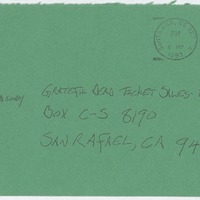 PM
1987
GRATEFUL DEAD TICKET SALES -
BOX C-S 8190
SAN RAFAEL, CA 94